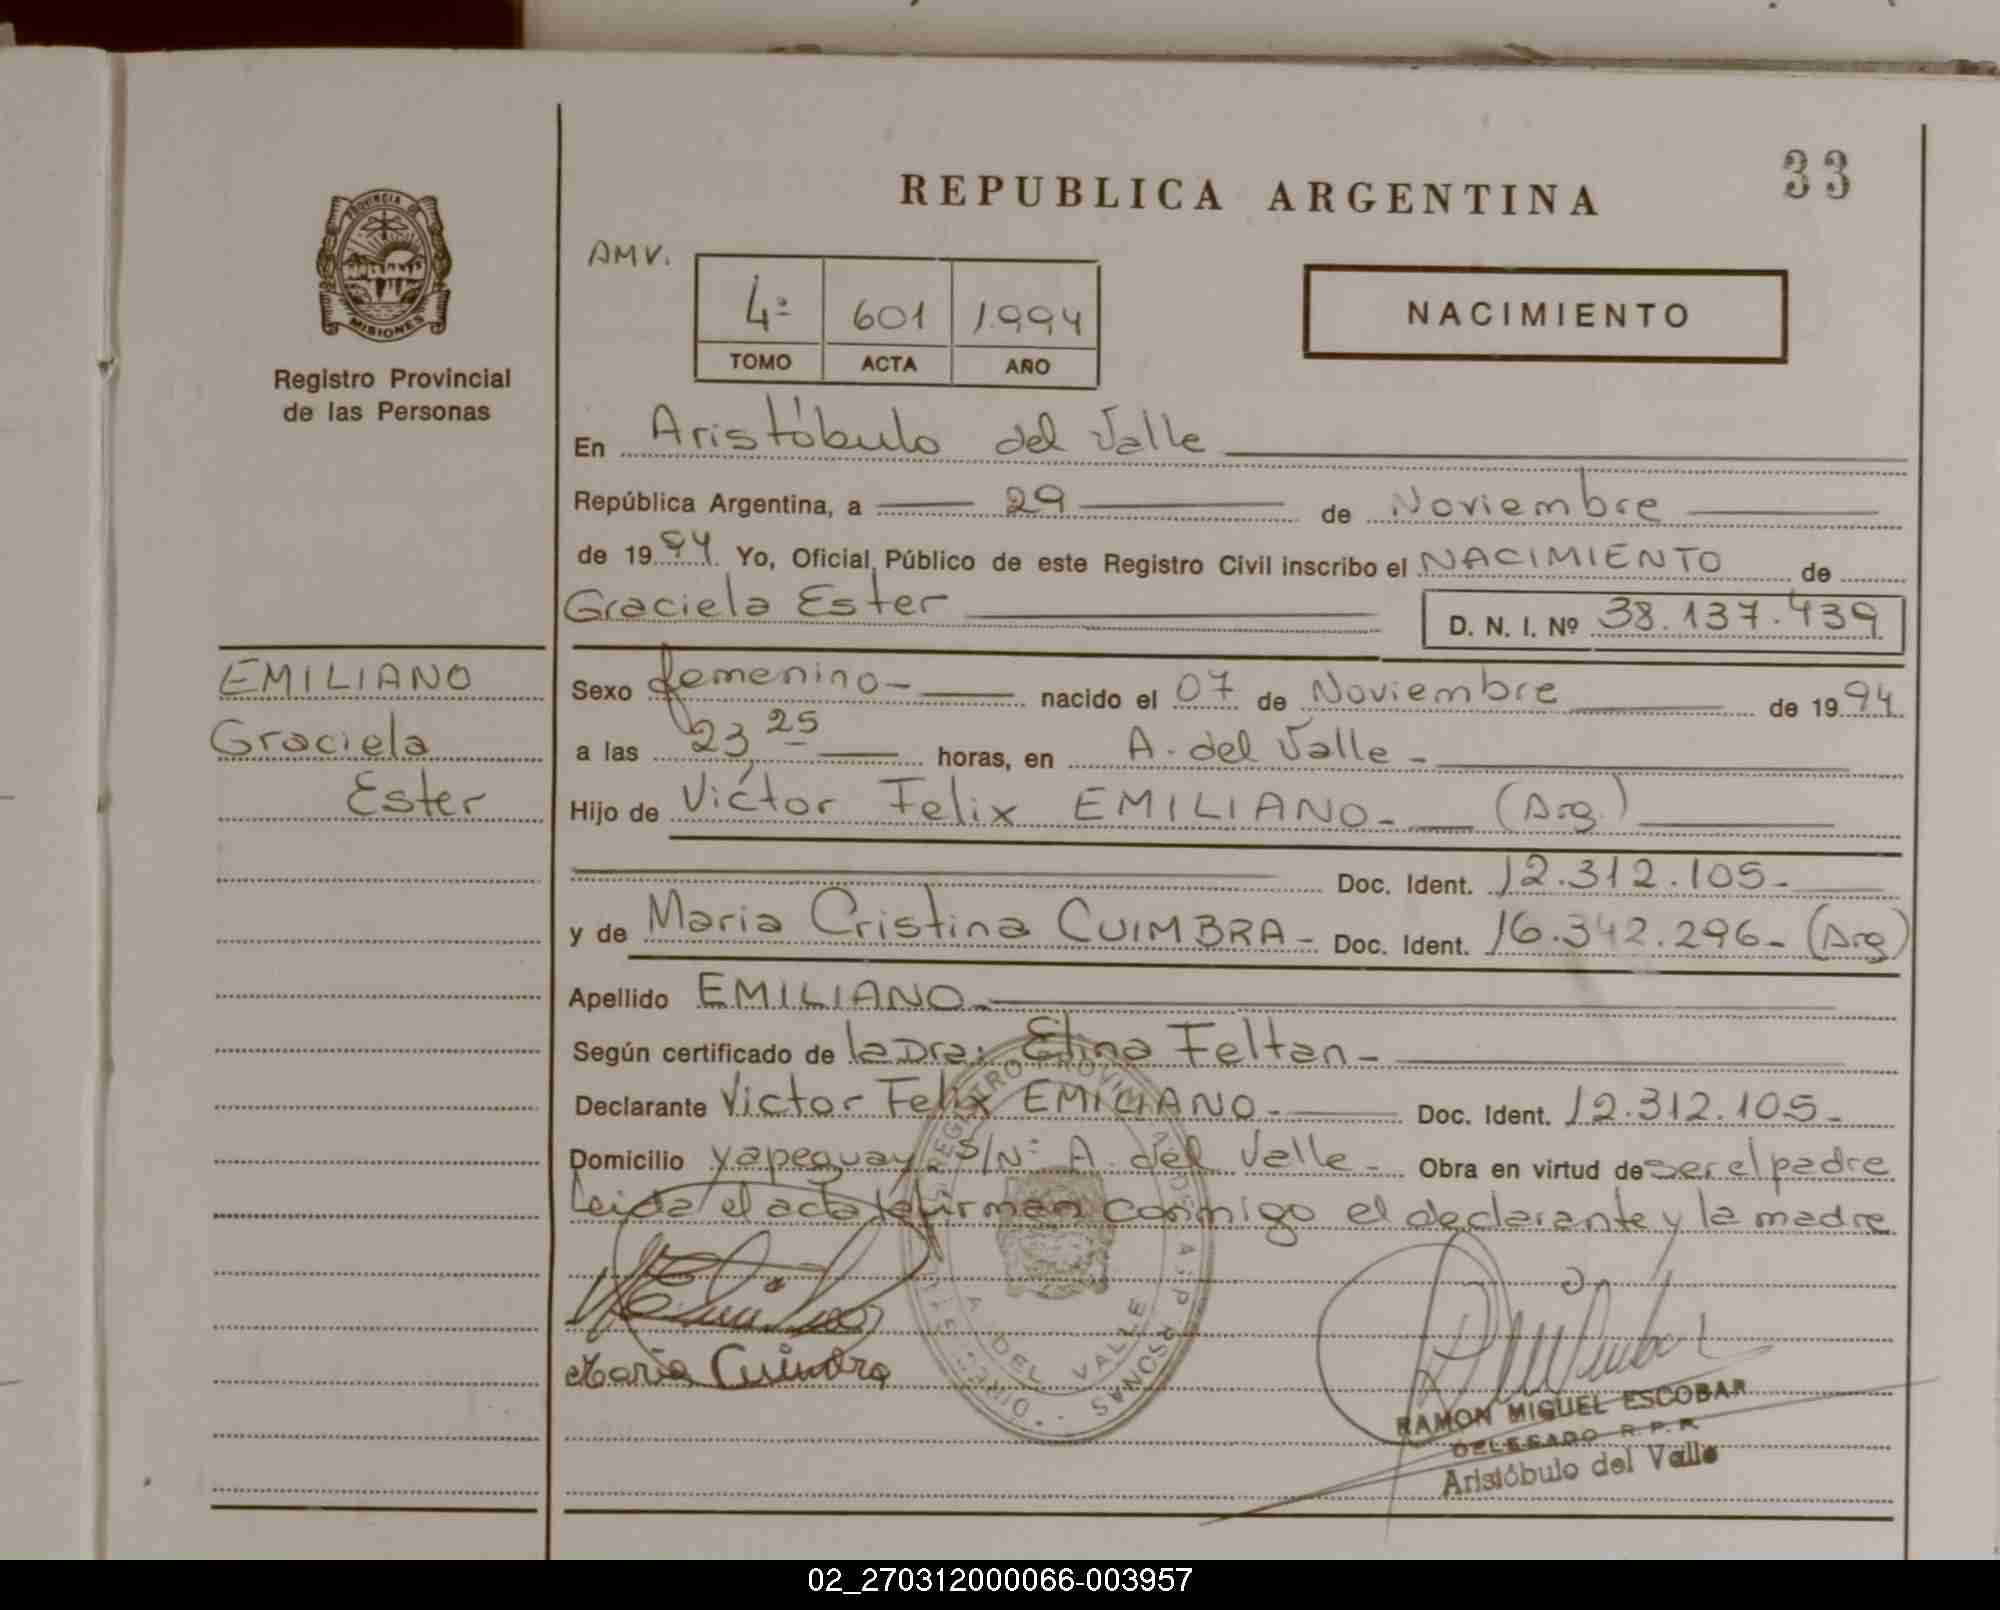 33
REPUBLICA ARGENTINA
PROVINCIA DE
MISIONES
Registro Provincial
de las Personas
AMV.
4º 601 1.994
TOMO ACTA AÑO
NACIMIENTO
En Aristóbulo del Valle
República Argentina, a 29 de Noviembre
de 1994 Yo, Oficial Público de este Registro Civil inscribo el NACIMIENTO de
Graciela Ester D. N. I. Nº 38.137.439
EMILIANO
Graciela
Ester
Sexo femenino- nacido el 07 de Noviembre de 1994
a las 23,25 horas, en A. del Valle -
Hijo de Victor Felix EMILIANO- (Arg.)
Doc. Ident. 12.312.105-
y de Maria Cristina CUIMBRA- Doc. Ident. 16.342.296- (Arg)
Apellido EMILIANO-
Según certificado de la Dra: Elina Feltan-
Declarante Victor Felix EMILIANO- Doc. Ident. 12.312.105-
Domicilio Yapeguay S/Nº A. del Valle- Obra en virtud de ser el padre
Leida el acta la firman conmigo el declarante y la madre
Maria Cuimbra
A. DEL VALLE
RAMON MIGUEL ESCOBAR
DELEGADO R. P. P.
Aristóbulo del Valle
02_270312000066-003957